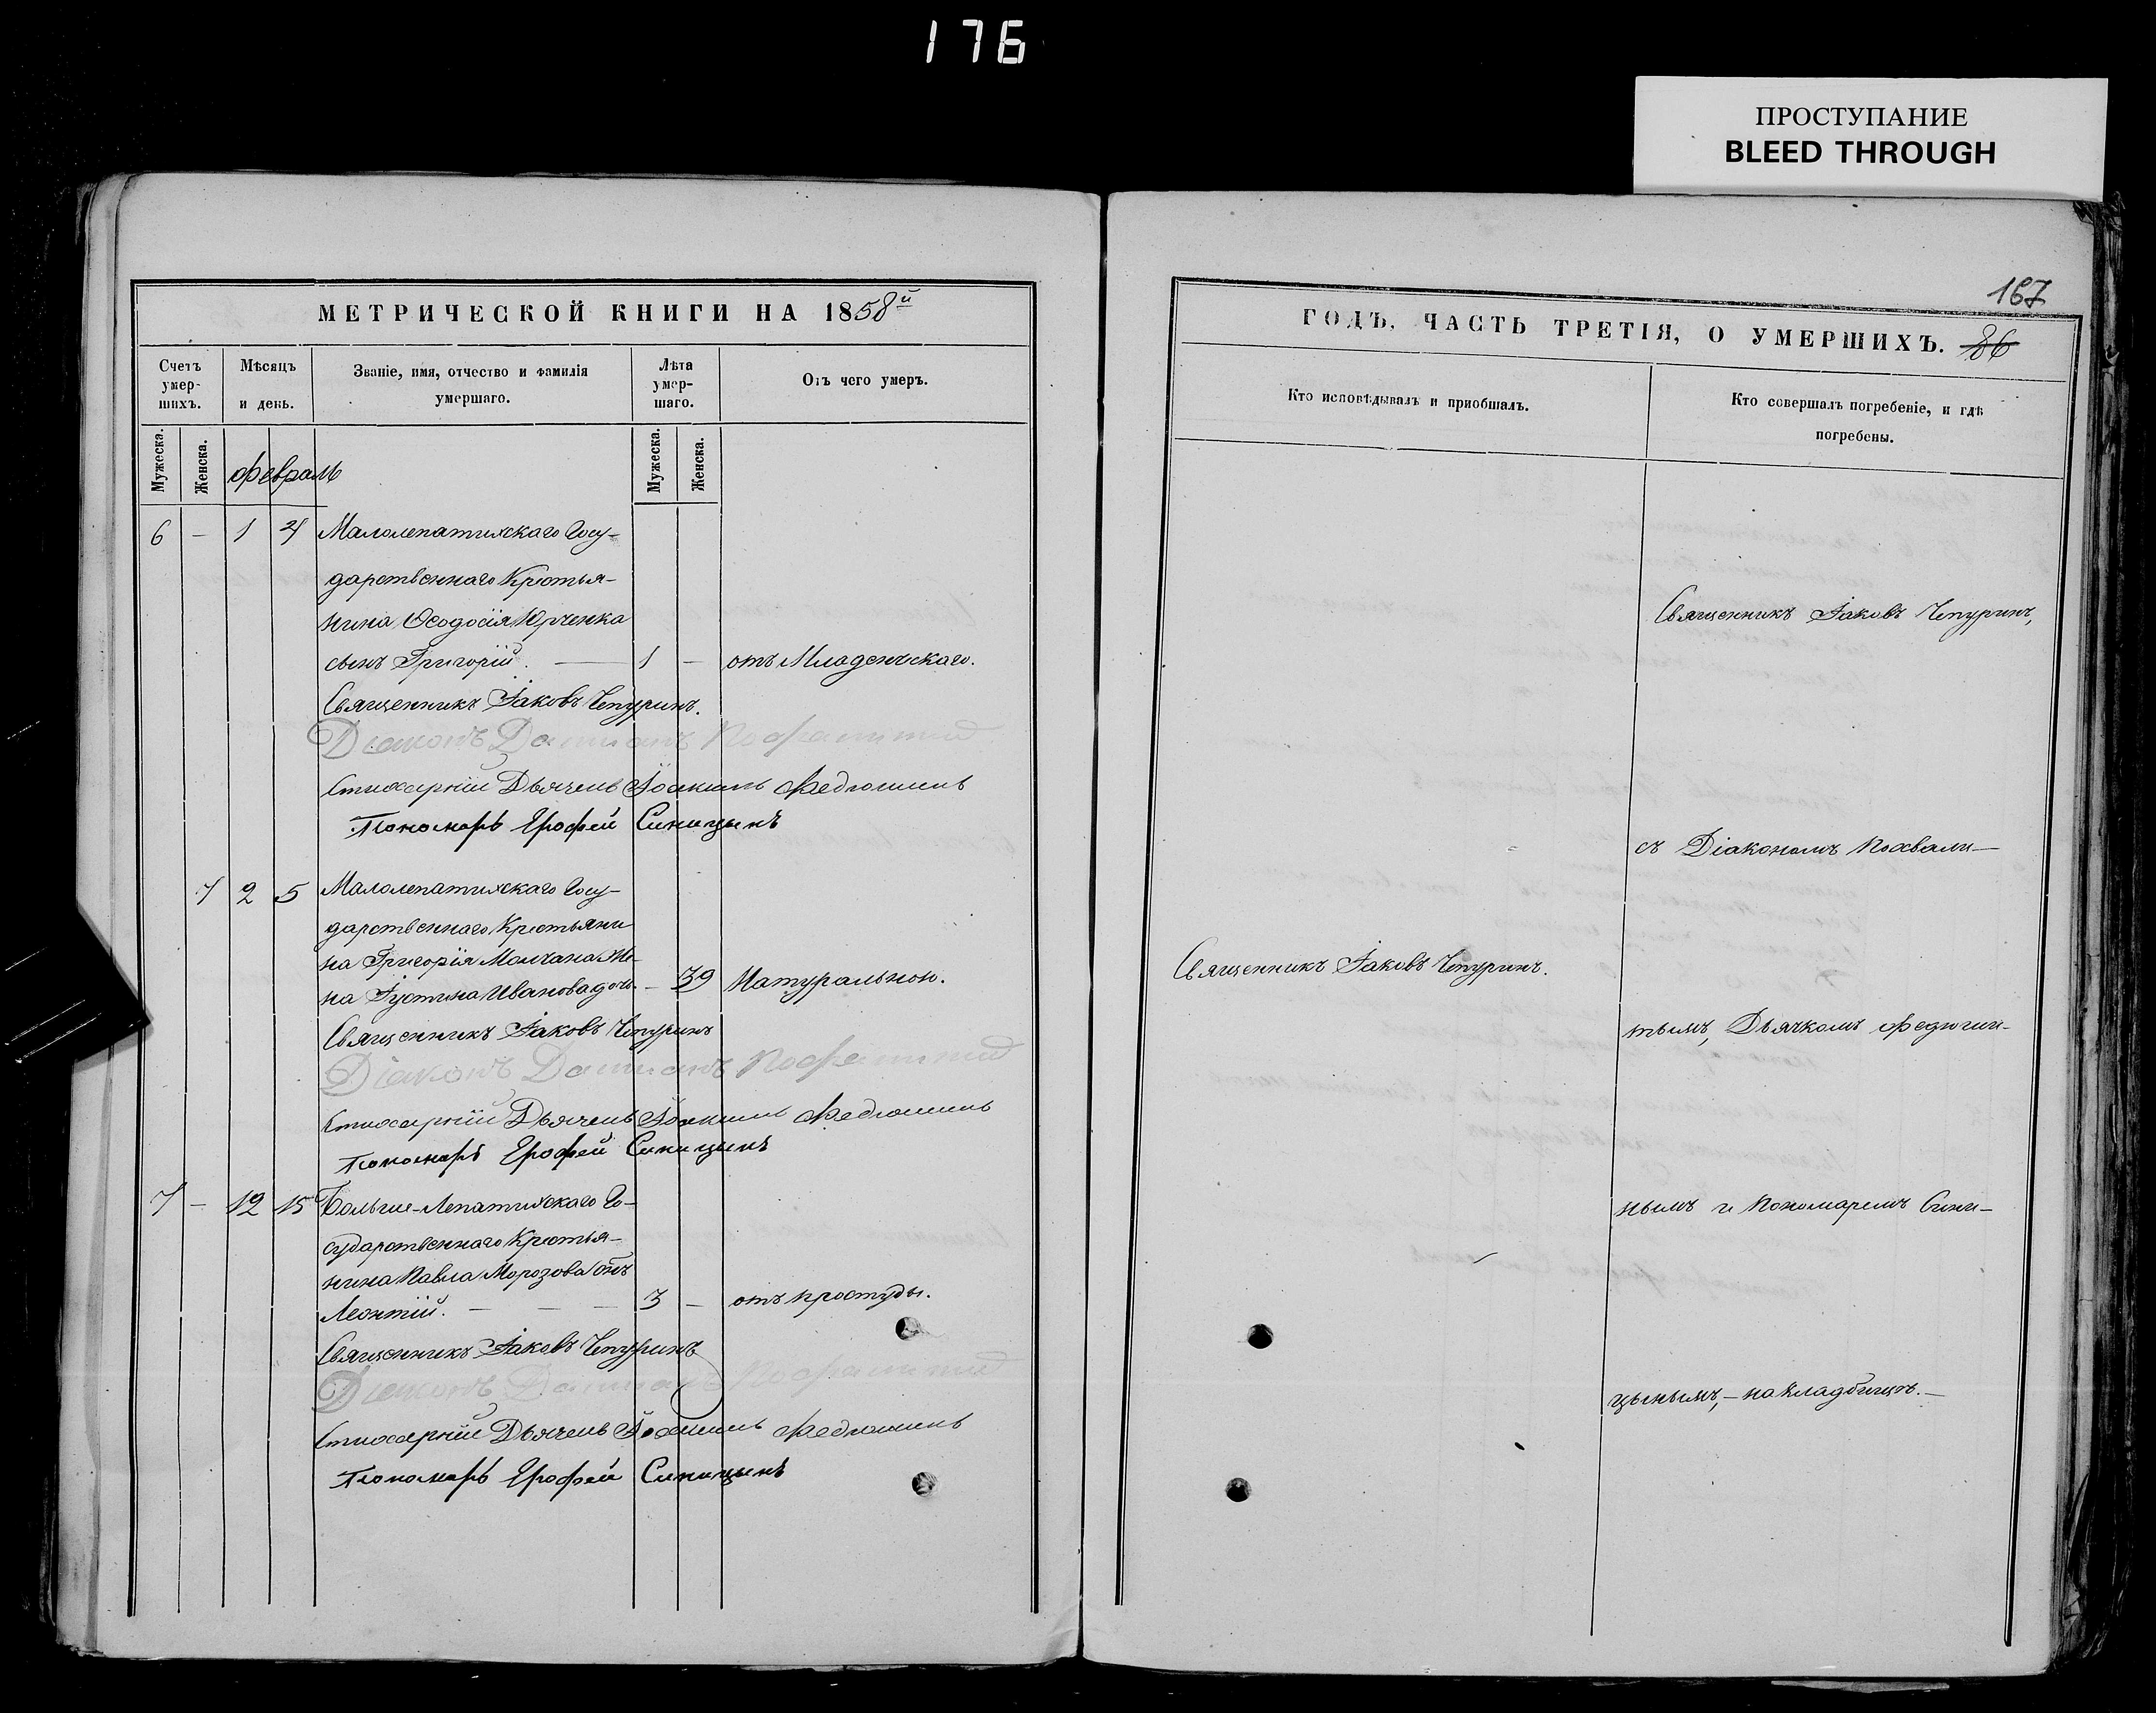 176
ПРОСТУПАНИЕ
BLEED THROUGH
МЕТРИЧЕСКОЙ КНИГИ НА 1858й
Счетъ умер-шихъ.
Мѣсяцъ и день.
Званіе, имя, отчество и фамилія умершаго.
Лѣта умер-шаго.
Отъ чего умеръ.
Мужеска.
Женска.
Февраль
Мужеска.
Женска.
6 - 1 4 Малолепатихскаго Госу-
дарственнаго Крестья-
нина Ѳеодосія Юрченка
сынъ Григорій. — 1 - отъ Младенческаго.
Священникъ Іаковъ Чепуринъ.
Діаконъ Даміанъ
Стихарный Дьячекъ Іоакимъ Федюшинъ
Пономарь Ерофей Синицынъ
7 2 5 Малолепатихскаго Госу-
дарственнаго Крестьяни
на Григорія Молчана Же-
на Іустина Иванова дочь. - 39 Натуральною.
Священникъ Іаковъ Чепуринъ
Діаконъ Даміанъ
Стихарный Дьячекъ Іоакимъ Федюшинъ
Пономарь Ерофей Синицынъ
7 - 12 15 Больше-Лепатихскаго Го-
сударственнаго Крестья-
нина Павла Морозова сынъ
Леонтій. — — — 3 - отъ простуды.
Священникъ Іаковъ Чепуринъ
Діаконъ Даміанъ
Стихарный Дьячекъ Іоакимъ Федюшинъ
Пономарь Ерофей Синицынъ
167
ГОДЪ, ЧАСТЬ ТРЕТІЯ, О УМЕРШИХЪ. 86
Кто исповѣдывалъ и приобщалъ.
Кто совершалъ погребеніе, и гдѣ погребены.
Священникъ Іаковъ Чепуринъ,
съ Діакономъ Похвали-
Священникъ Іаковъ Чепуринъ.
тымъ, Дьячкомъ Федюши-
нымъ и Пономаремъ Сини-
цынымъ, - на кладбищѣ. -